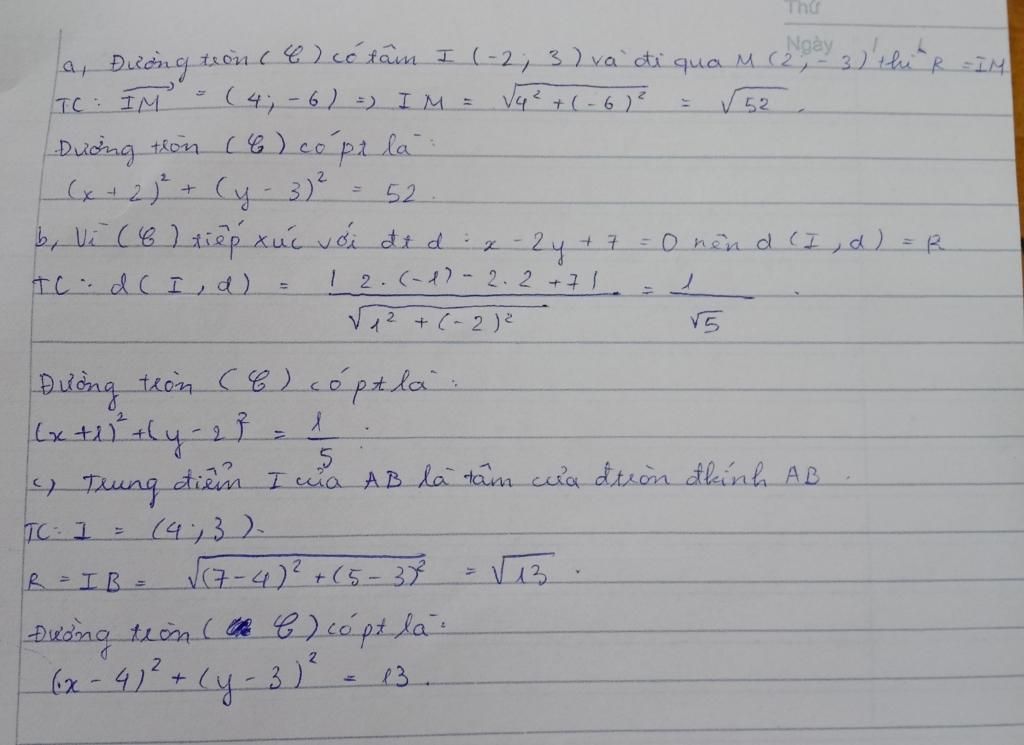 Thứ
Ngày
a, Đường tròn (C) có tâm I (-2; 3) và đi qua M (2; -3) thì R = IM
TC: IM = (4; -6) => IM = √4² + (-6)² = √52.
Đường tròn (C) có pt là:
(x + 2)² + (y - 3)² = 52.
b, Vì (C) tiếp xúc với đt d: x - 2y + 7 = 0 nên d (I, d) = R
TC: d(I, d) = |2.(-1) - 2.2 + 7| / √1² + (-2)² = 1/√5.
Đường tròn (C) có pt là:
(x + 1)² + (y - 2)² = 1/5.
c, Trung điểm I của AB là tâm của đtròn đkính AB.
TC: I = (4; 3).
R = IB = √(7-4)² + (5-3)² = √13.
Đường tròn (C) có pt là:
(x - 4)² + (y - 3)² = 13.